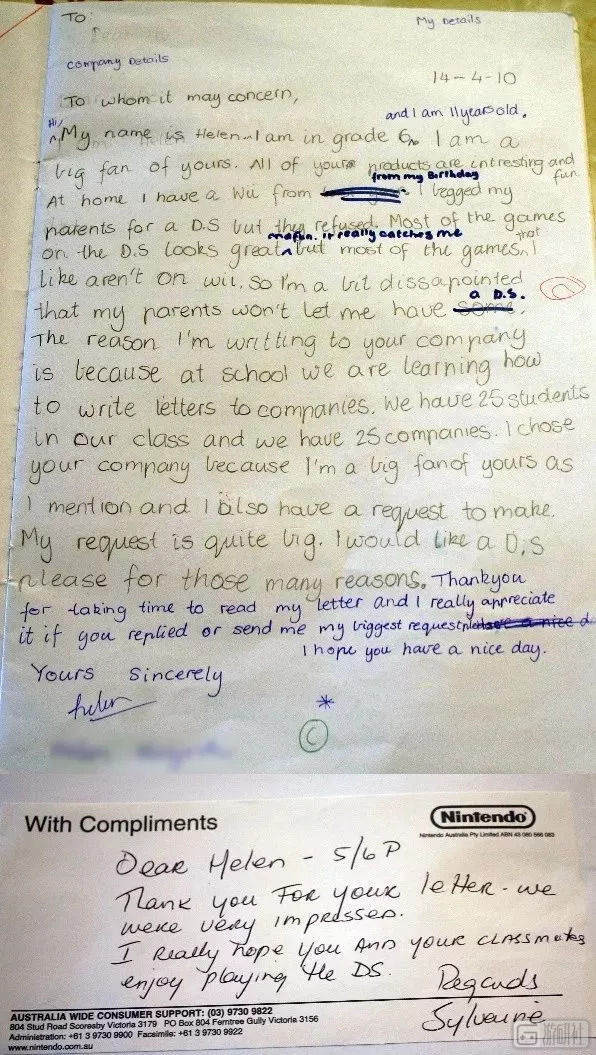 To
My Details
Company Details
14-4-10
To whom it may concern,
and I am 11 years old.
Hi/
My name is Helen. I am in grade 6. I am a
big fan of yours. All of yours products are intresting and
fun
from my Birthday
At home I have a Wii from I begged my
parents for a D.S but they refused. Most of the games
it really catches me
that
on the D.S looks great but most of the games I
like aren't on wii. So I'm a bit dissapointed
a D.S.
that my parents won't let me have some.
The reason I'm writting to your company
is because at school we are learning how
to write letters to companies. We have 25 students
in our class and we have 25 companies. I chose
your company because I'm a big fan of yours as
I mention and I also have a request to make.
My request is quite big. I would like a D.S
please for those many reasons. Thankyou
for taking time to read my letter and I really appreciate
it if you replied or send me my biggest request please a nice d
I hope you have a nice day.
Yours Sincerely
helen
*
C
With Compliments
Nintendo
Nintendo Australia Pty Limited ABN 43 060 566 083
Dear Helen - 5/6P
Thank you For your letter - we
were very impressed.
I Really hope you And your classmates
enjoy playing the DS.
Regards
Sylvaine
AUSTRALIA WIDE CONSUMER SUPPORT: (03) 9730 9822
804 Stud Road Scoresby Victoria 3179 PO Box 804 Ferntree Gully Victoria 3156
Administration: +61 3 9730 9900 Facsimile: +61 3 9730 9922
www.nintendo.com.au
游研社